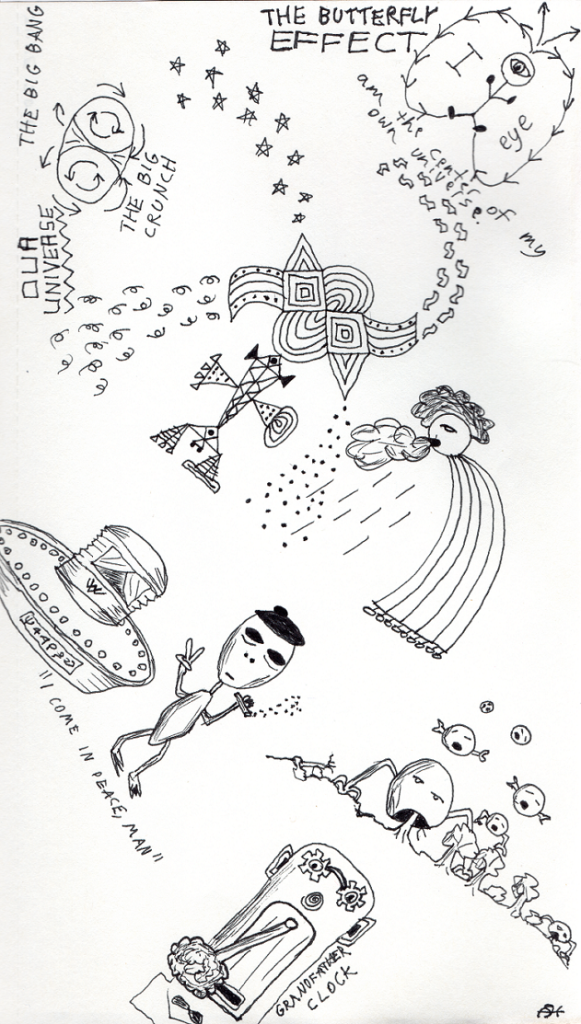 THE BUTTERFLY
EFFECT
I
eye
am the center of my
own universe.
THE BIG BANG
THE BIG
CRUNCH
OUR
UNIVERSE
"I COME IN PEACE, MAN"
GRANDFATHER
CLOCK